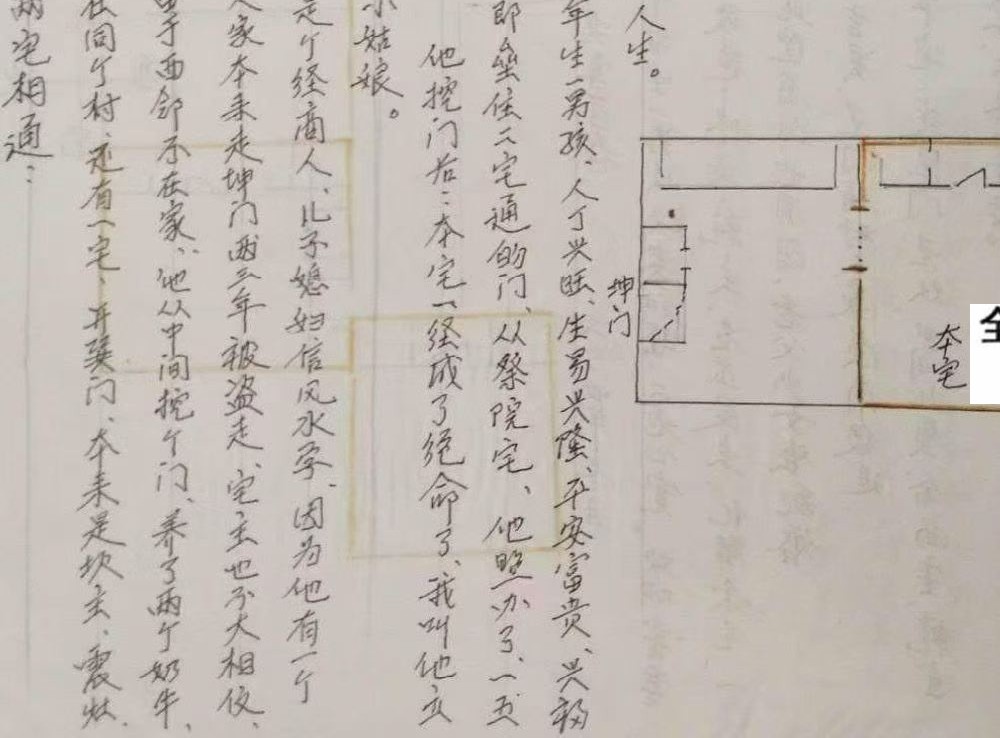 两宅相通:
在同个村还有一宅、开巽门、本来是坎主、震灶、
于西邻不在家、他从中间挖个门、养了两个奶牛、
人家本来走坤门两三年被盗走、宅主也不大相伩、
是个经商人、儿子媳妇信风水学、因为他有一个
小姑娘。
他挖门后:本宅一经成了绝命了、我叫他立
即垒住二宅通的门、从祭院宅、他照办了、一五
年生一男孩、人丁兴旺、生易兴隆、平安富贵、兴福
人生。
坤门
本宅
全